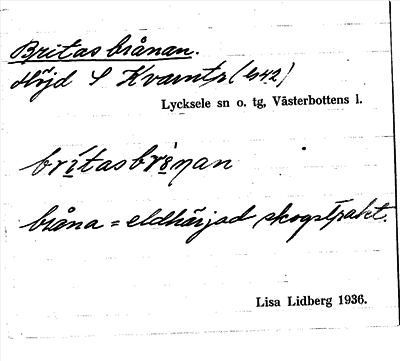 Britas brånan.
Höjd S Kvarntr (
Lycksele sn o. tg, Västerbottens l.
brítasbrånan
bråna = eldhärjad skogstrakt.
Lisa Lidberg 1936.